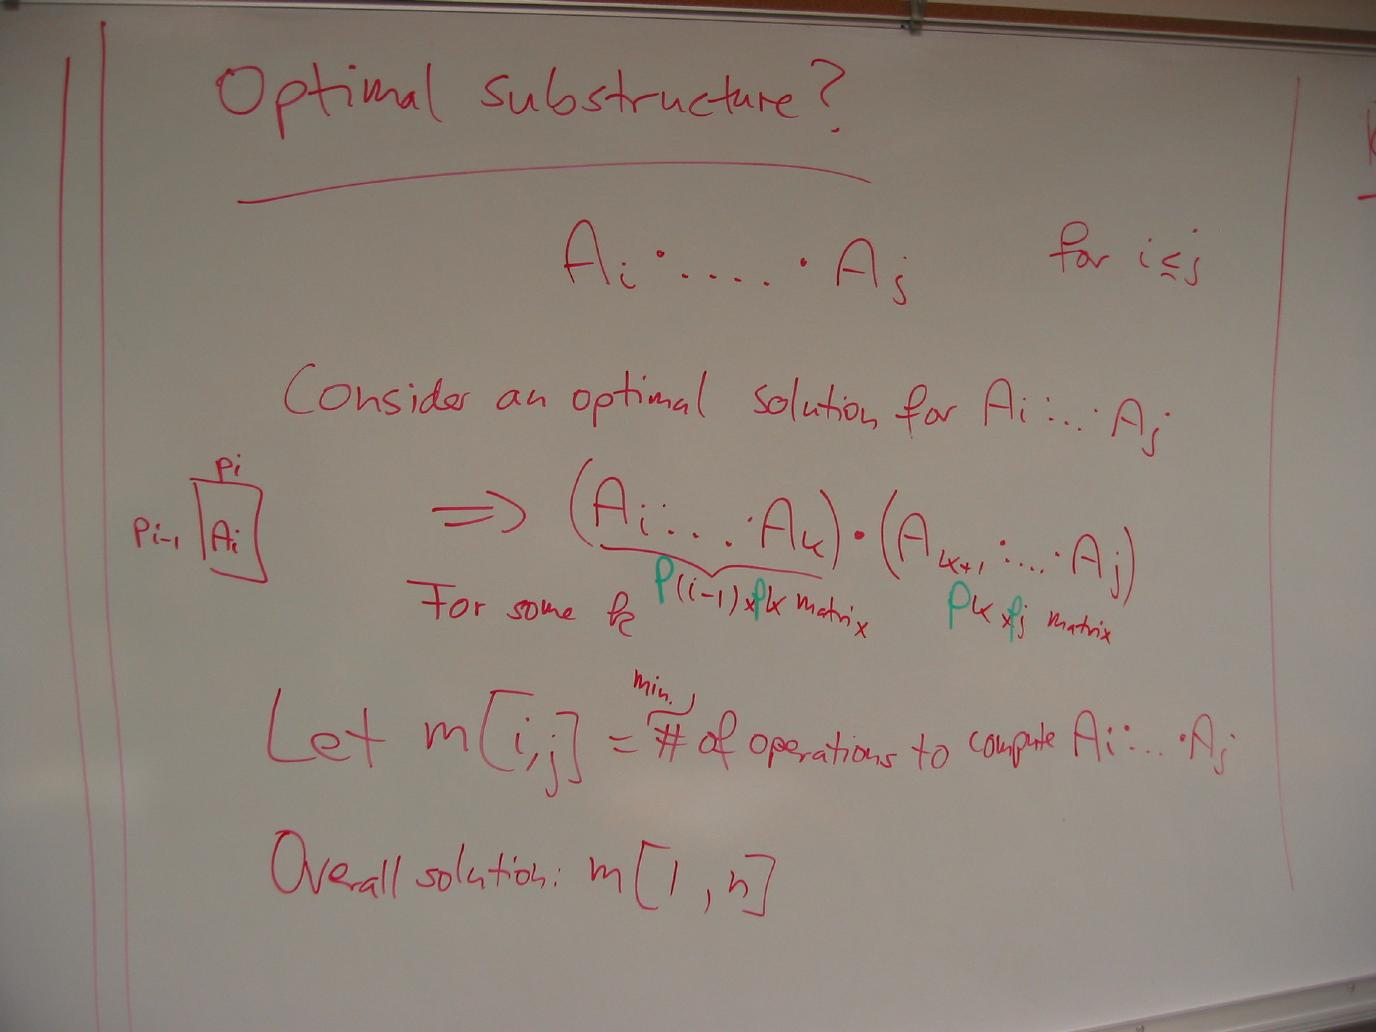 Optimal substructure?
Ai · .... · Aj for i ≤ j
Consider an optimal solution for Ai · ... · Aj
pi
pi-1 Ai
⇒ (Ai · ... · Ak) · (Ak+1 · ... · Aj)
For some k P(i-1) x Pk matrix Pk x Pj matrix
min.
Let m[i,j] = # of operations to compute Ai · ... · Aj
Overall solution: m[1, n]